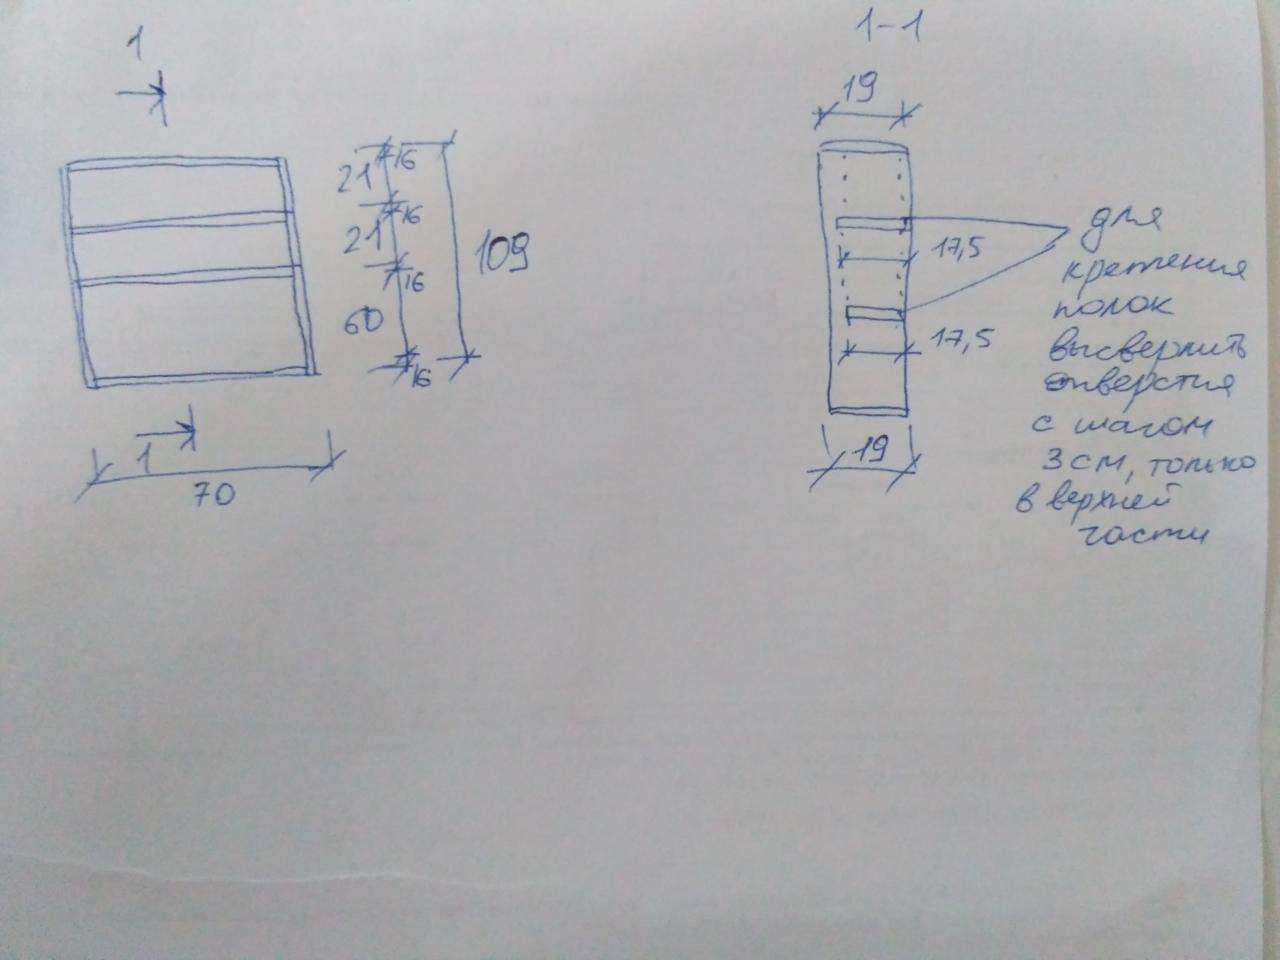 1
1-1
19
21
16
21
16
109
16
60
16
1
70
17,5
17,5
19
для
крепления
полок
высверлить
отверстия
с шагом
3 см, только
в верхней
части